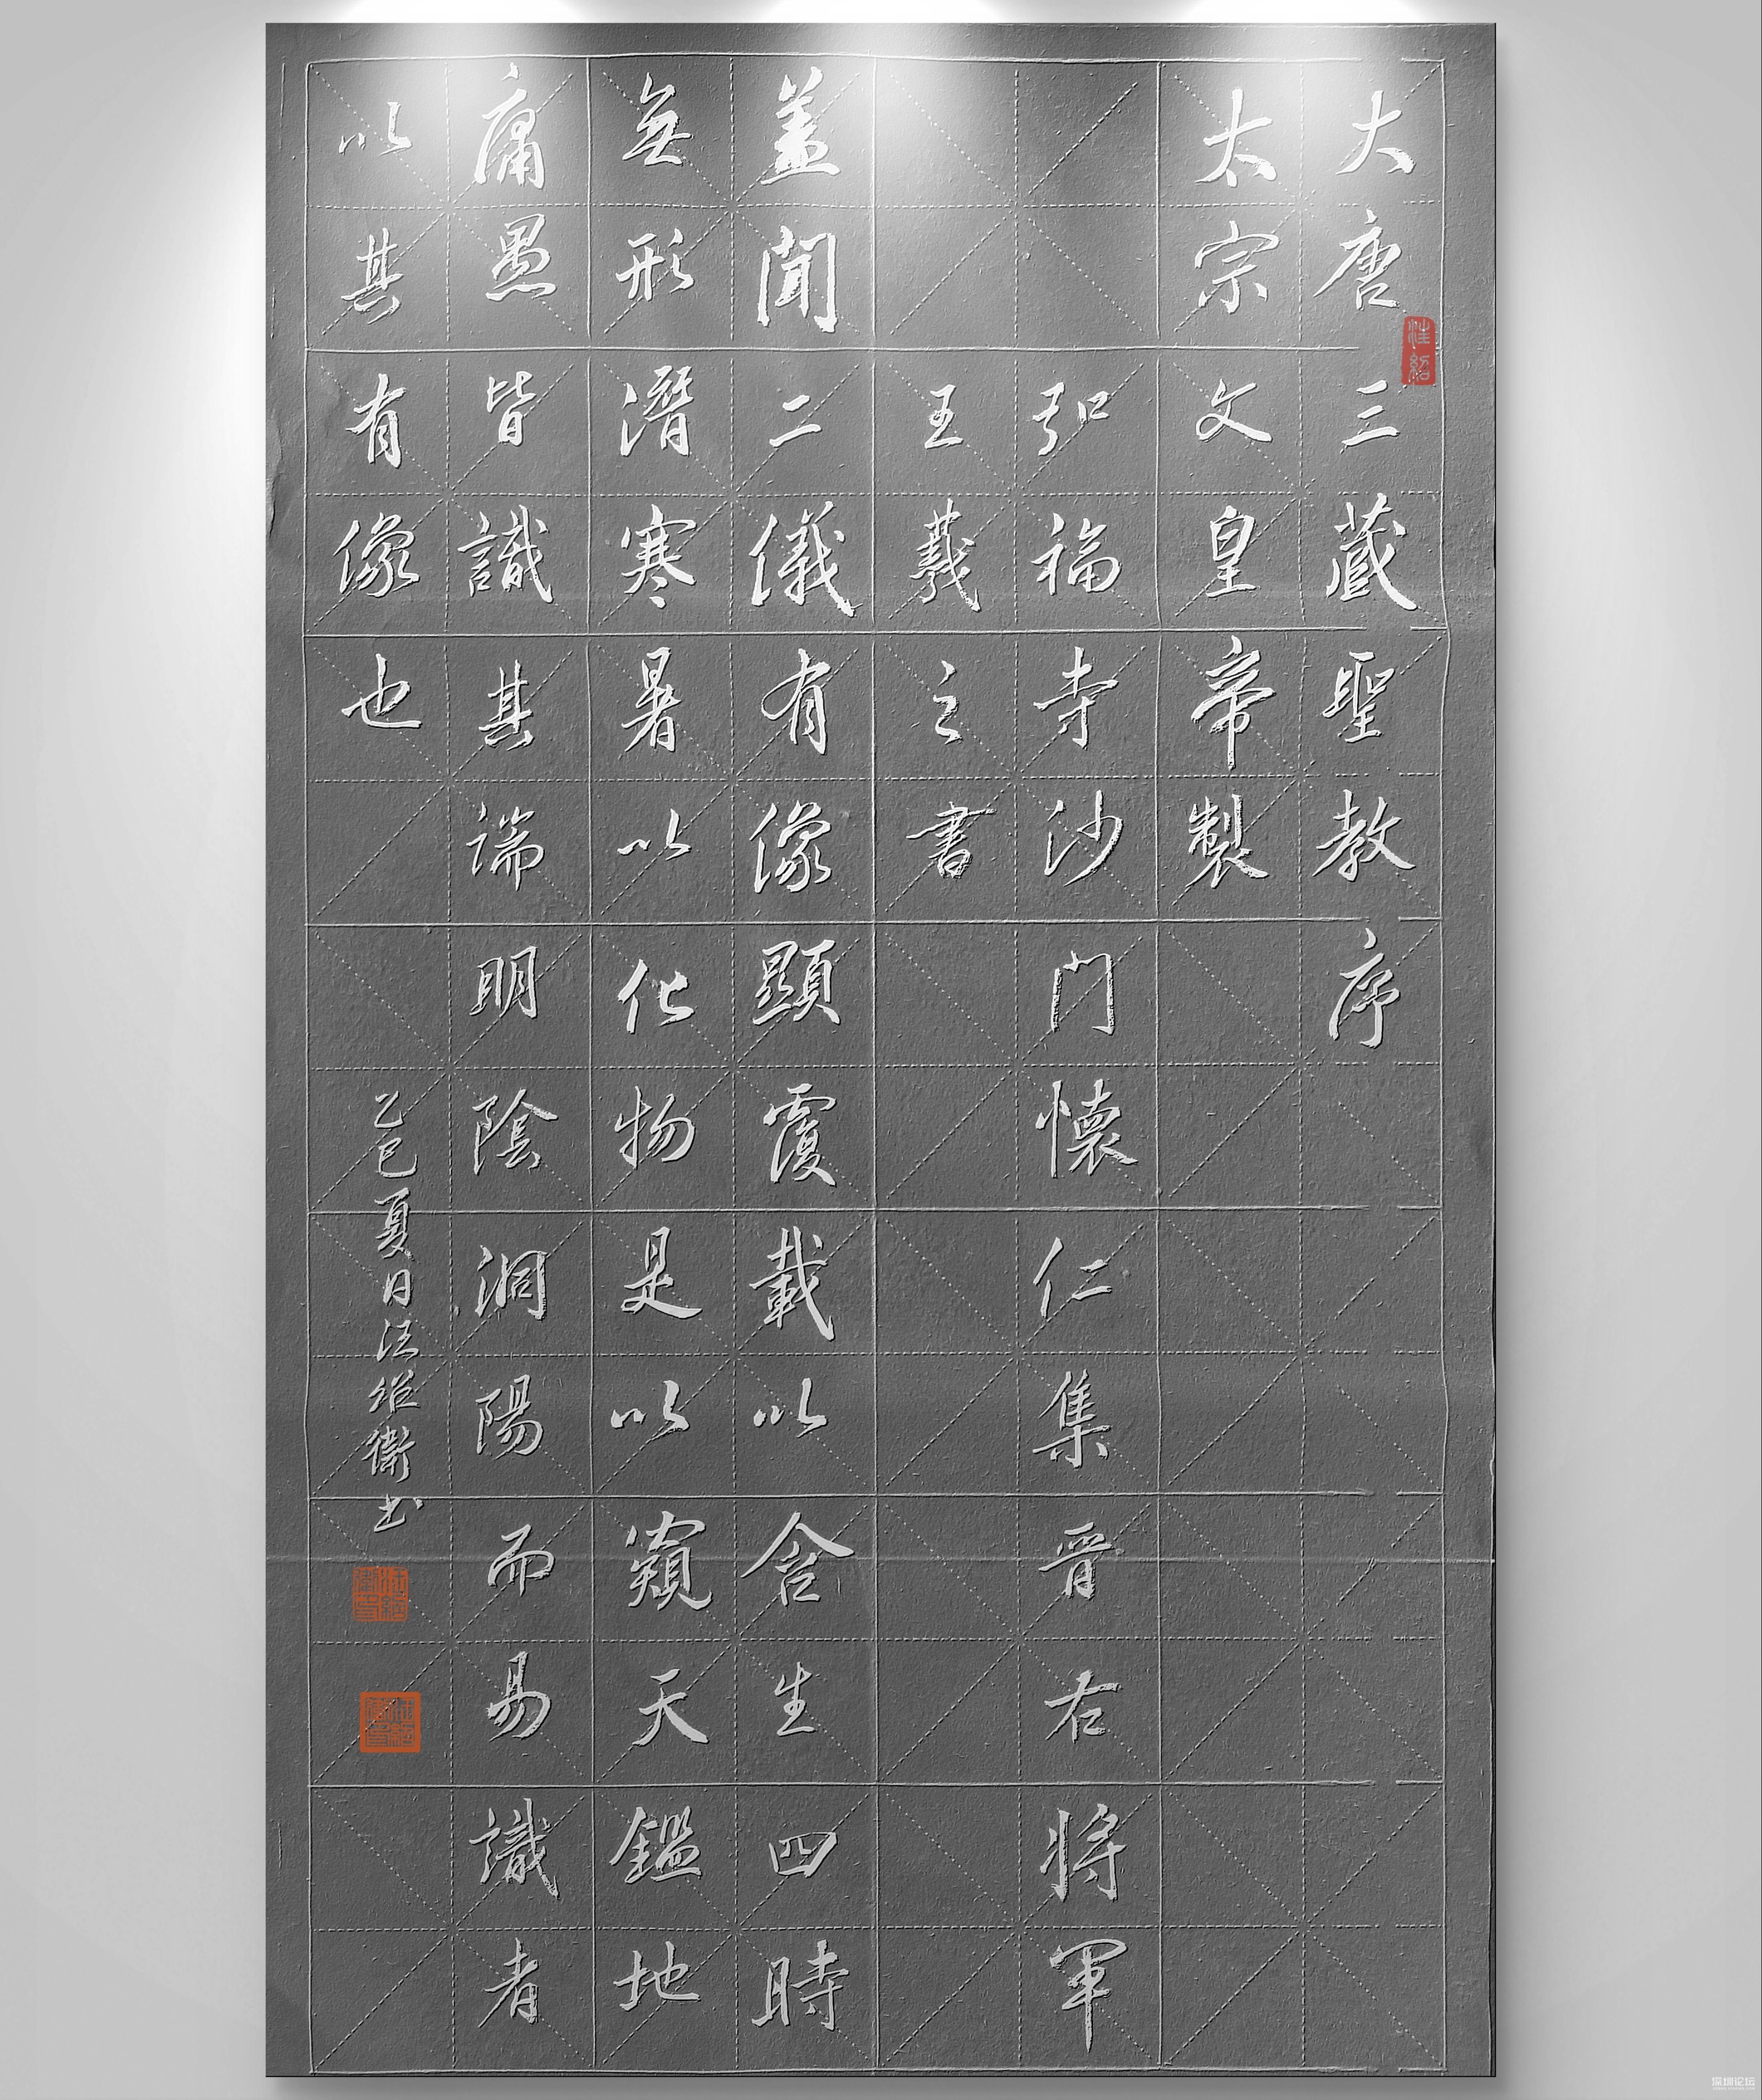 大唐三藏聖教序
太宗文皇帝製
弘福寺沙门懷仁集晋右將軍
王羲之書
盖聞二儀有像顯覆載以含生四時
無形潛寒暑以化物是以窺天鑑地
庸愚皆識其端明陰洞陽而易識者
以其有像也
乙巳夏日汪紹衛书
汪紹
深圳论坛